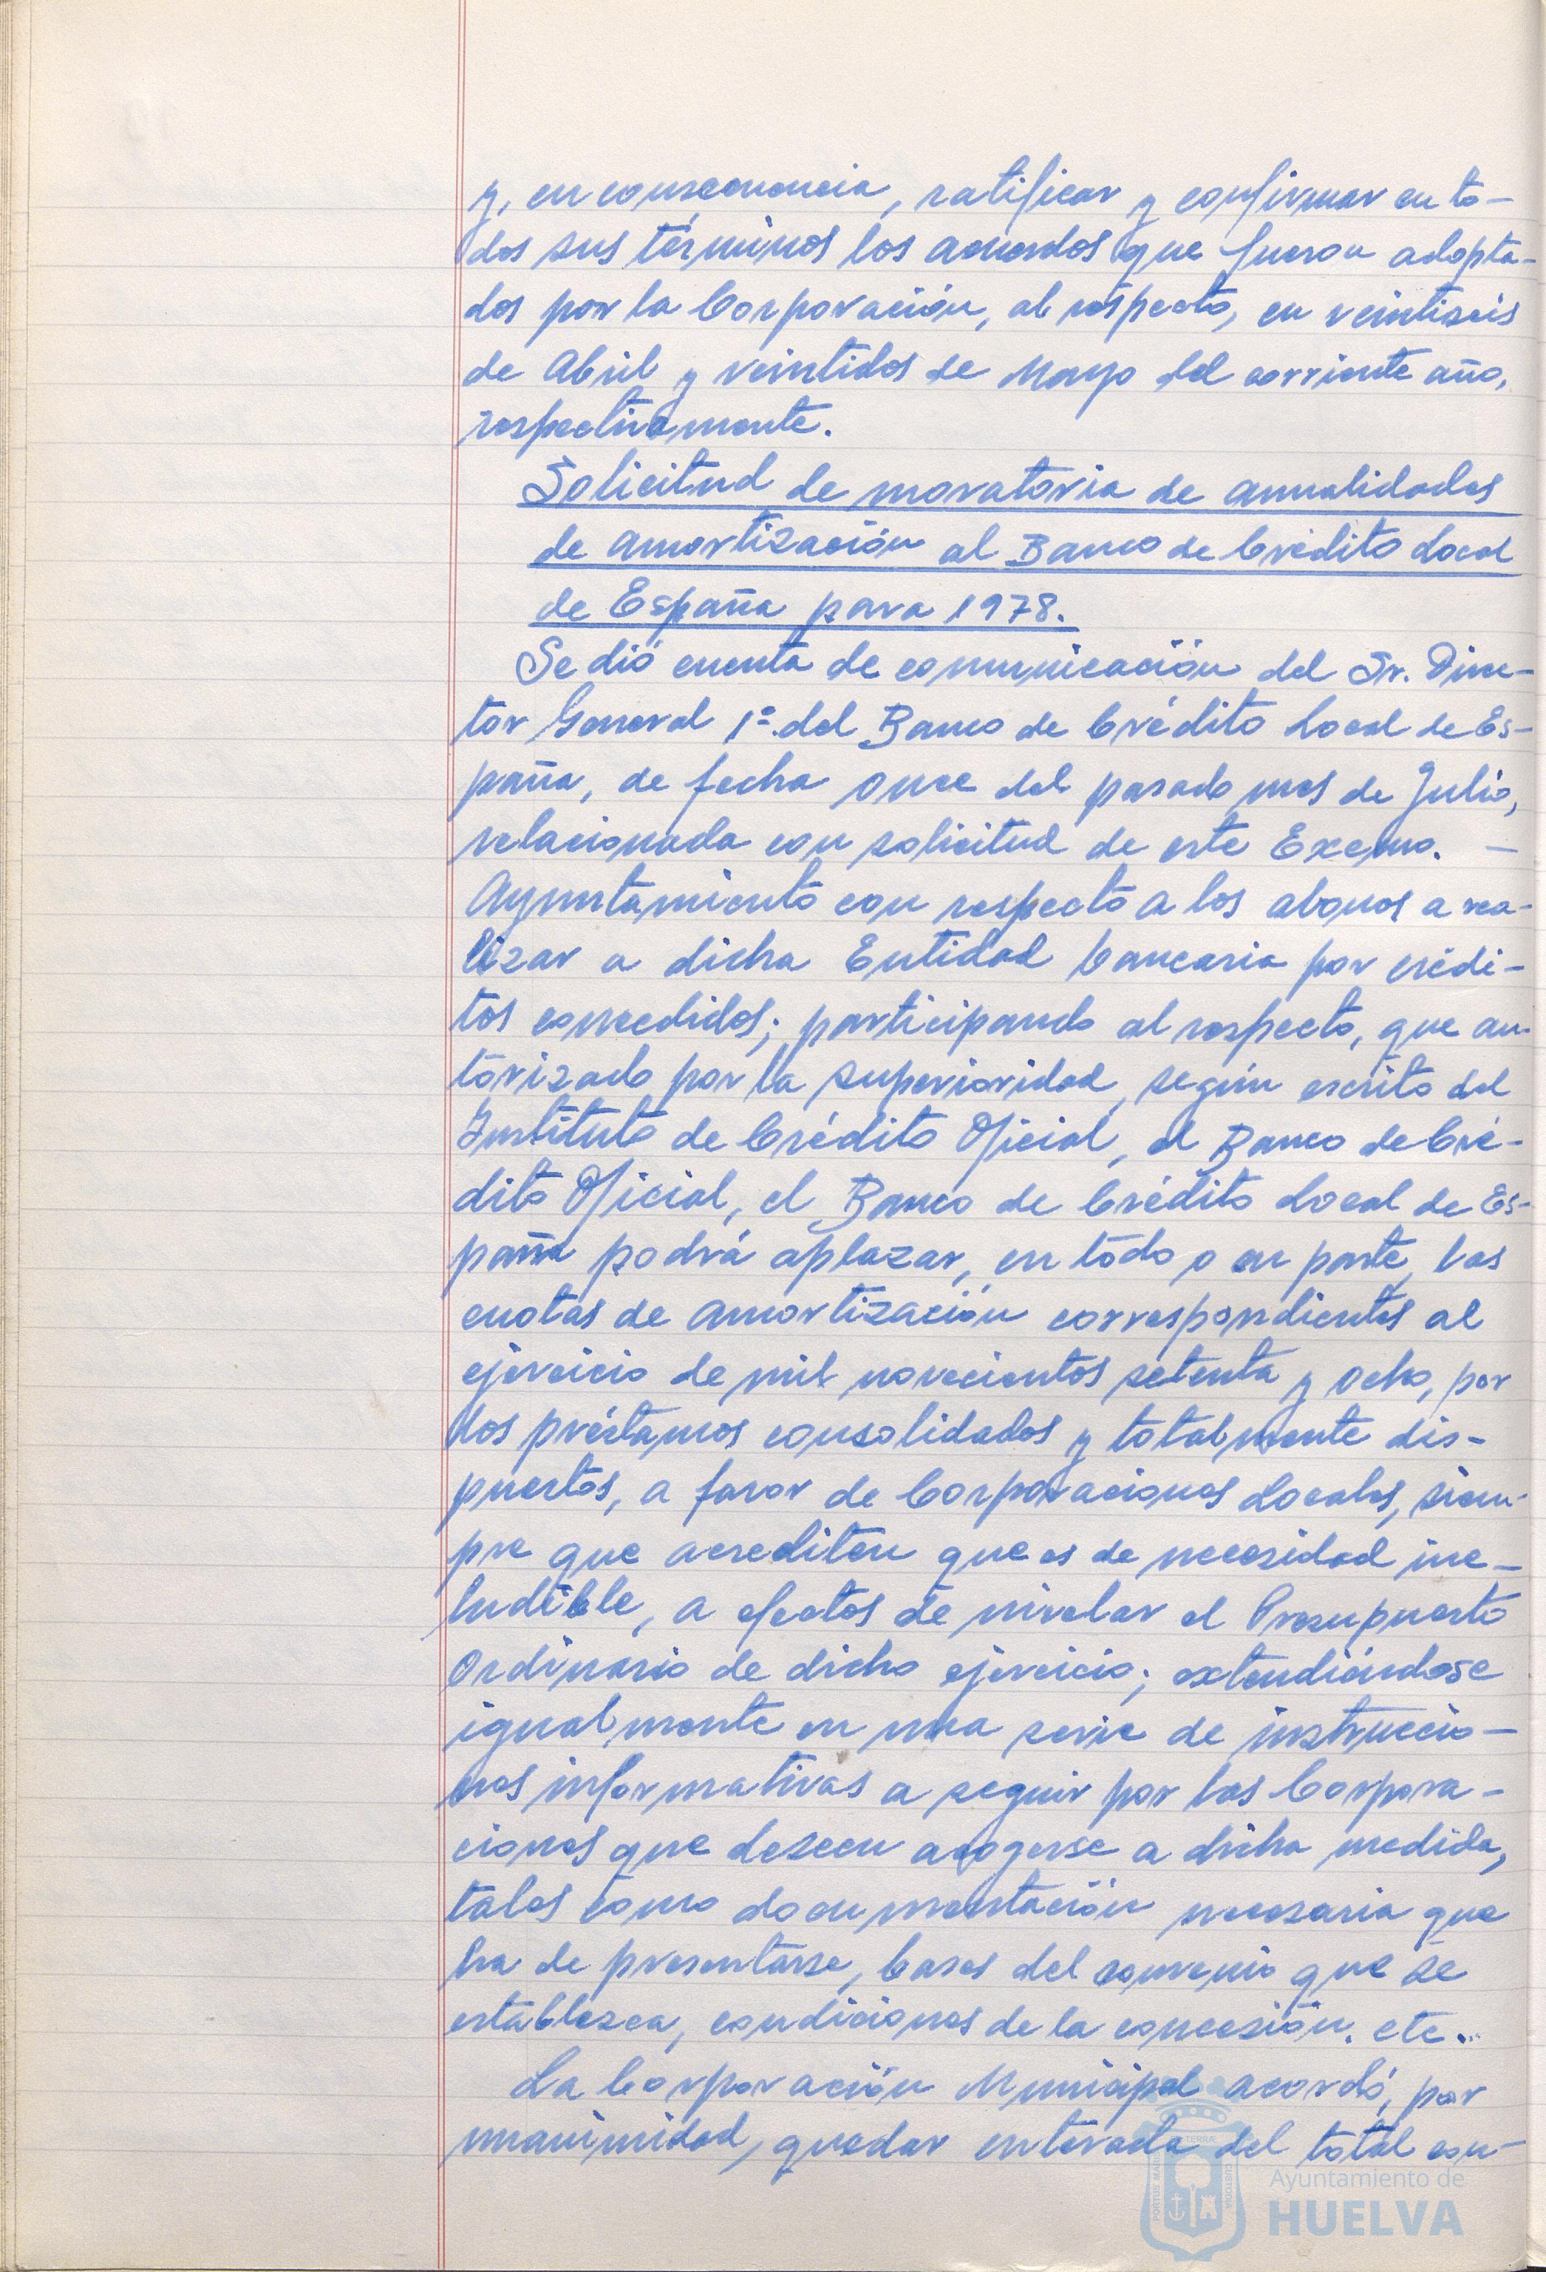 y, en consecuencia, ratificar y confirmar en to-
dos sus términos los acuerdos que fueron adopta-
dos por la Corporación, al respecto, en veintiseis
de Abril y veintidos de Mayo del corriente año,
respectivamente.
Solicitud de moratoria de anualidades
de amortización al Banco de Crédito Local
de España para 1978.
Se dió cuenta de comunicación del Sr. Direc-
tor General 1º del Banco de Crédito Local de Es-
paña, de fecha once del pasado mes de Julio,
relacionada con solicitud de este Excmo. -
Ayuntamiento con respecto a los abonos a rea-
lizar a dicha Entidad bancaria por crédi-
tos concedidos; participando al respecto, que au-
torizado por la superioridad, según escrito del
Instituto de Crédito Oficial, el Banco de Cré-
dito Oficial, el Banco de Crédito Local de Es-
paña podrá aplazar, en todo o en parte, las
cuotas de amortización correspondientes al
ejercicio de mil novecientos setenta y ocho, por
los préstamos consolidados y totalmente dis-
puestos, a favor de Corporaciones Locales, siem-
pre que acrediten que es de necesidad ine-
ludible, a efectos de nivelar el Presupuesto
Ordinario de dicho ejercicio; extendiéndose
igualmente en una serie de instruccio-
nes informativas a seguir por las Corpora-
ciones que deseen acogerse a dicha medida,
tales como documentación necesaria que
ha de presentarse, bases del convenio que se
establezca, condiciones de la concesión, etc...
La Corporación Municipal acordó, por
unanimidad, quedar enterada del total con-
Ayuntamiento de
HUELVA